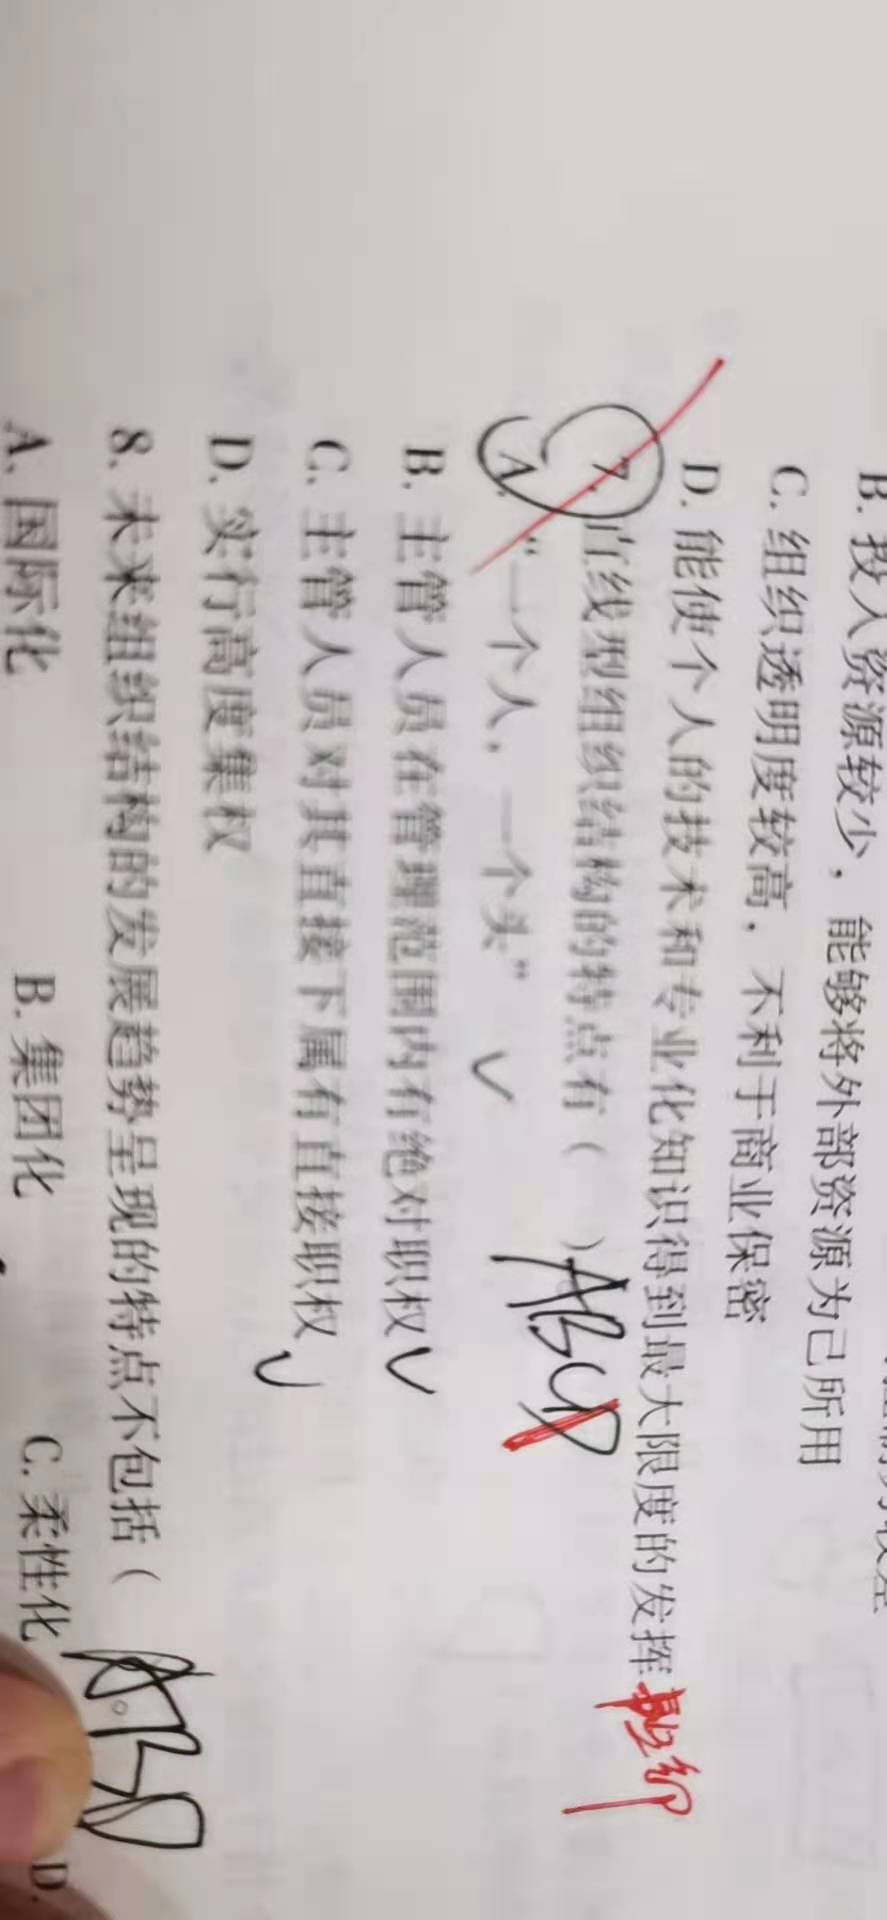 B. 投入资源较少，能够将外部资源为己所用
C. 组织透明度较高，不利于商业保密
D. 能使个人的技术和专业化知识得到最大限度的发挥
7. 直线型组织结构的特点有（ ）ABCD
A. “一个人，一个头” ✓
B. 主管人员在管理范围内有绝对职权 ✓
C. 主管人员对其直接下属有直接职权 ✓
D. 实行高度集权
8. 未来组织结构的发展趋势呈现的特点不包括（
A. 国际化 B. 集团化 C. 柔性化 D.